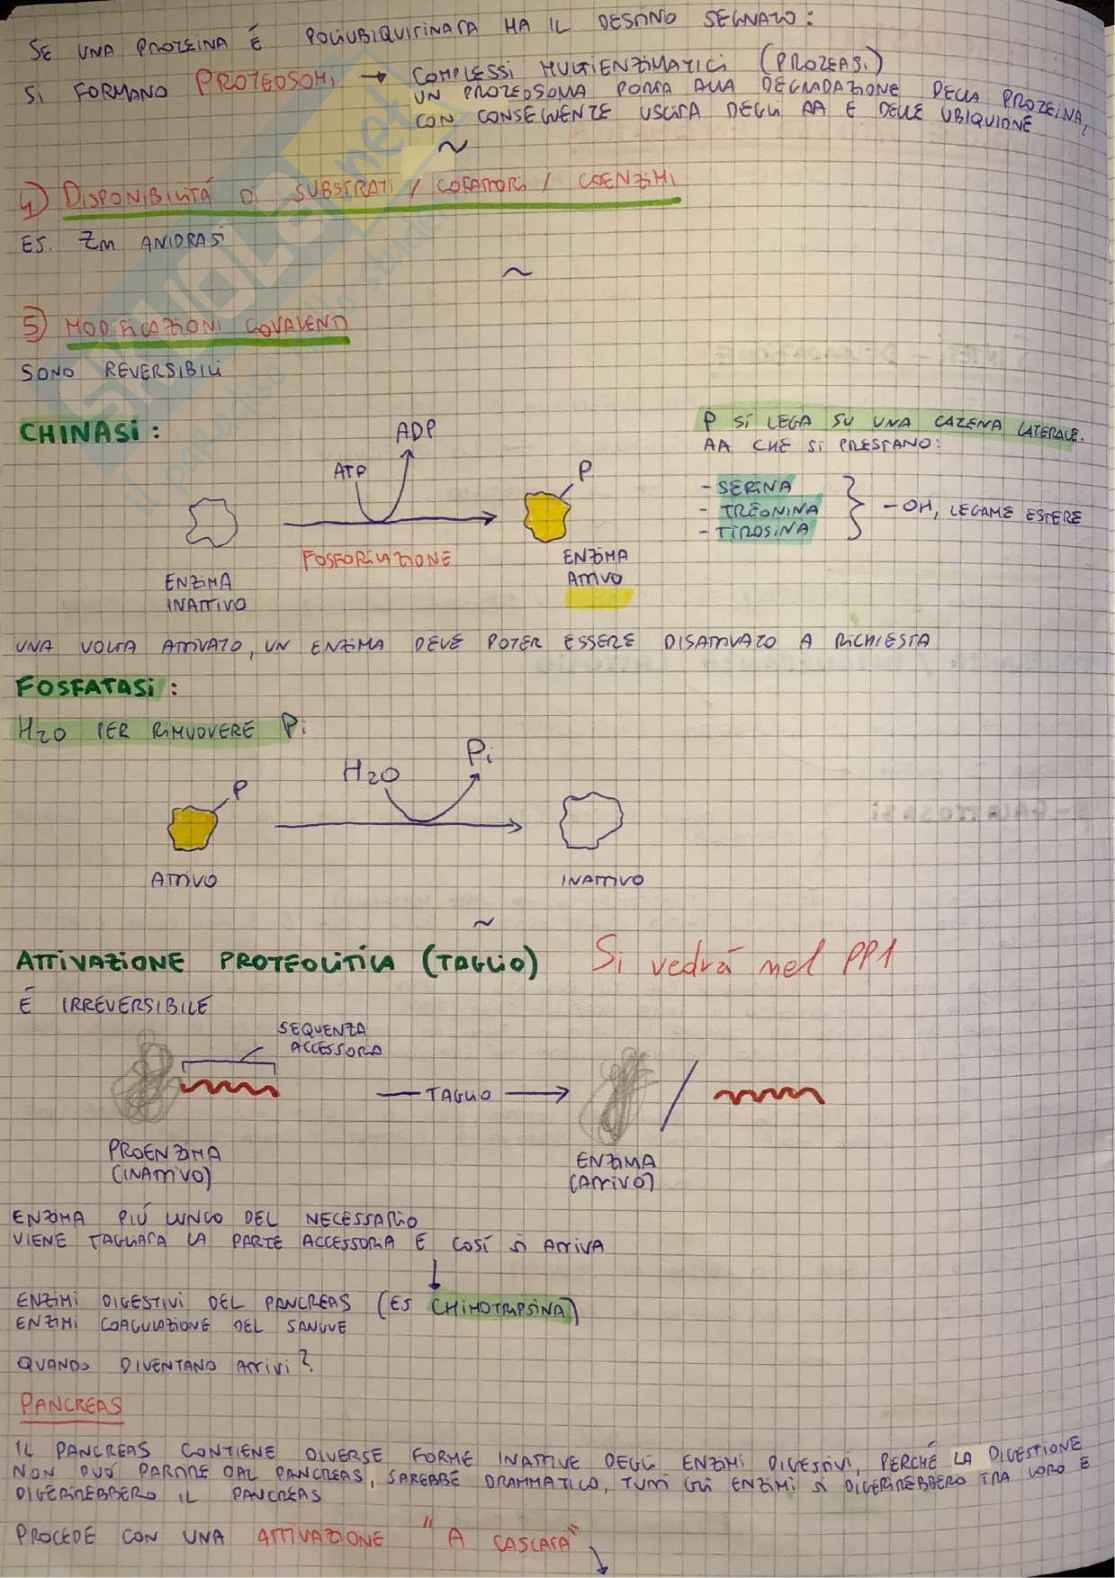 SE UNA PROTEINA É POLIUBIQUITINATA HA IL DESTINO SEGNATO:
SI FORMANO PROTEOSOMI → COMPLESSI MULTIENZIMATICI (PROTEASI)
UN PROTEOSOMA PORTA ALLA DEGRADAZIONE DELLA PROTEINA,
CON CONSEGUENTE USCITA DEGLI AA E DELLE UBIQUIONE
~
4) DISPONIBILITÁ DI SUBSTRATI / COFATTORI / COENZIMI
ES. Zn ANIDRASI
~
5) MODIFICAZIONI COVALENTI
SONO REVERSIBILI
CHINASI:
P SI LEGA SU UNA CATENA LATERALE.
AA CHE SI PRESTANO:
- SERINA
- TREONINA
- TIROSINA
- OH, LEGAME ESTERE
ATP
ADP
P
FOSFORILAZIONE
ENZIMA
INATTIVO
ENZIMA
ATTIVO
UNA VOLTA ATTIVATO, UN ENZIMA DEVE POTER ESSERE DISATTIVATO A RICHIESTA
FOSFATASI:
H2O PER RIMUOVERE Pi
P
H2O
Pi
ATTIVO
INATTIVO
~
ATTIVAZIONE PROTEOLITICA (TAGLIO) Si vedrá nel PP1
É IRREVERSIBILE
SEQUENZA
ACCESSORIA
— TAGLIO →
PROENZIMA
(INATTIVO)
ENZIMA
(ATTIVO)
ENZIMA PIÚ LUNGO DEL NECESSARIO
VIENE TAGLIATA LA PARTE ACCESSORIA E COSÍ SI ATTIVA
ENZIMI DIGESTIVI DEL PANCREAS (ES CHIMOTRIPSINA)
ENZIMI COAGULAZIONE DEL SANGUE
QUANDO DIVENTANO ATTIVI?
PANCREAS
IL PANCREAS CONTIENE DIVERSE FORME INATTIVE DEGLI ENZIMI DIGESTIVI, PERCHÉ LA DIGESTIONE
NON PUÓ PARTIRE DAL PANCREAS, SAREBBE DRAMMATICO, TUTTI GLI ENZIMI SI DIGERIREBBERO TRA LORO E
DIGERIREBBERO IL PANCREAS
PROCEDE CON UNA ATTIVAZIONE "A CASCATA"